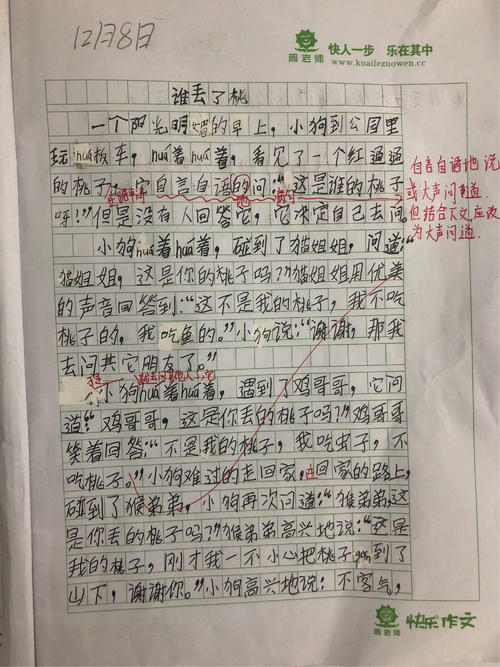 12月8日
周老师
快人一步 乐在其中
www.kuailezuowen.cc
谁丢了桃
一个阳光明媚的早上，小狗到公园里
玩huá板车，huá着huá着，看见了一个红通通
的桃子，它自言自语的问：“这是谁的桃子
地
呀！”但是没有人回答它，它决定自己去问
自言自语地说
或大声问道
但结合下文应改
为大声问道.
小狗huá着huá着，碰到了猫姐姐，问道：“
猫姐姐，这是你的桃子吗？”猫姐姐用优美
的声音回答到：“这不是我的桃子，我不吃
桃子的，我吃鱼的。”小狗说：“谢谢，那我
去问其它朋友了。”
小狗huá着huá着，遇到了鸡哥哥，它问
道：“鸡哥哥，这是你丢的桃子吗？”鸡哥哥
笑着回答：“不是我的桃子，我吃虫子，不
吃桃子。”小狗难过的走回家，在回家的路上，
碰到了猴弟弟，小狗再次问道：“猴弟弟，这
是你丢的桃子吗？”猴弟弟高兴地说：“这是
我的桃子，刚才我一不小心把桃子gǔn到了
山下，谢谢你。”小狗高兴地说：不客气，
周老师
快乐作文